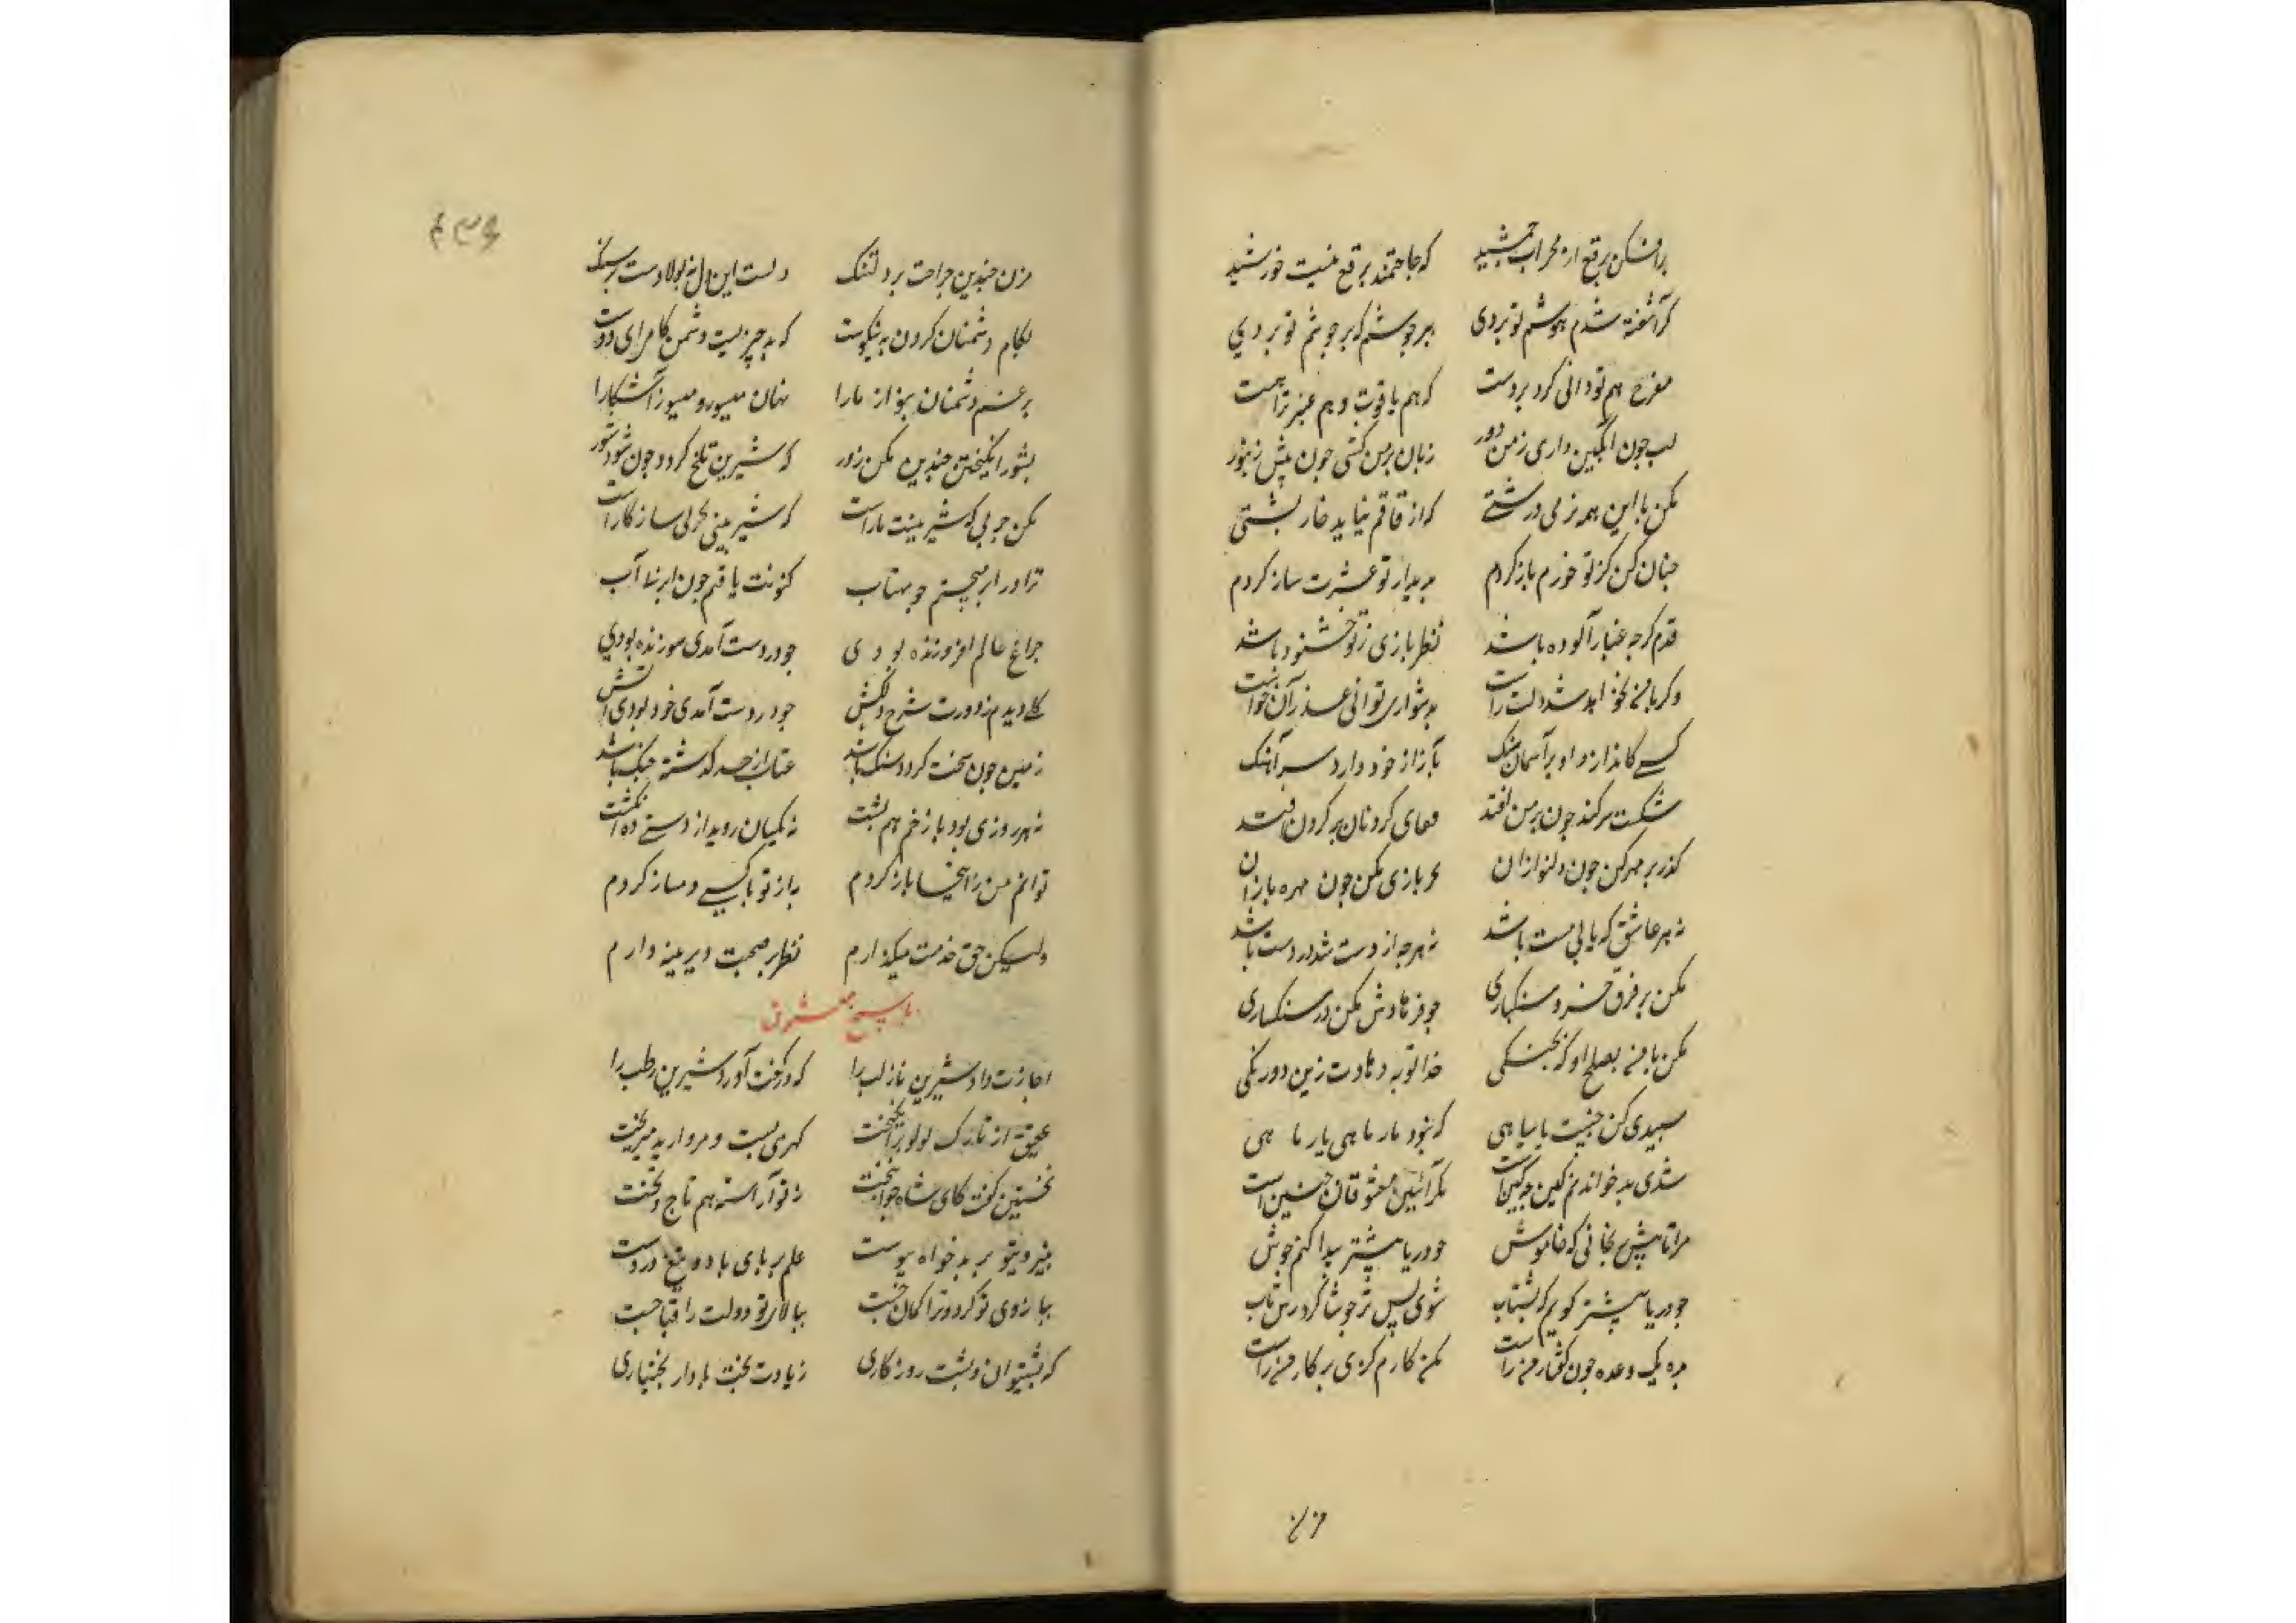 برافکن برقع از محراب جمشید که حاجتمند برقع نیست خورشید
کر آشفته شدم هوشم تو بردی ببر جوشم که سر جوشم تو بردی
مفرح هم تو دانی کرد بر دست که هم یاقوت و هم عنبر تراهست
لب چون انکبین داری زمن دور زبان بر من کشی چون نیش زنبور
مکن با این همه نرمی درشتی که از قاقم نیاید خار پشتی
چنان کن کز تو خوش دم باز کردم بدیدار تو عشرت ساز کردم
قدم کر چه غبار آلوده باشد نظر بازی ز تو خشنود باشد
وکر با من نخواهد شد دلت راست بدشواری توانی عذر آن خواست
کسی کاندازد او بر آسمان سنک بآزار خود دارد سر آهنک
شکست سر کند چون بر من افتد قفای کردنان بر کردن افتد
کذر بر مهر کن چون دلنوازان بازی مکن چون مهره بازان
نه هر عاشق که یابی مست باشد نه هر چه از دست شد در دست باشد
مکن بر فرق خسرو سنکباری چو فرهادش مکن در سنکساری
مکن با من بصلح او که جنکی خدا توبه دهادت زین دو رنکی
سپیدی کن جنیبت با سیاهی که نبود مار ماهی یار ماهی
شدی بد خو ندانم کین چه کینست مکر آئین معشوقان چنین است
مرا تا پیش رنجانی که خاموش چو دریا بیشتر پیدا کنم جوش
چو دریا بیشتر کویم که بشتاب شوی پس تر چو شاکرد رسن تاب
مده یک وعده چون کفتار من راست مکن کارم کژی بر کار من راست
مزن
مزن چندین جراحت بر دل تنک دلست این دل نه پولادست بر سنک
بکام دشمنان کردن نه نیکوست که بد چیزیست دشمن کامی ای دوست
برغم دشمنان بنواز مارا نهان میسوز و میسوز آشکارا
بشور انکیختن چندین مکن زور که شیرین تلخ کردد چون شود شور
مکن چربی که شیرینیت یار است که شیرینی بچربی سازکار است
ترا در ابر میجستم چو مهتاب کنونت یافتم چون ابر بی آب
چراغ عالم افروزنده بودی چو در دست آمدی سوزنده بودی
کلی دیدم ز دورت سرخ و دلکش چو در دست آمدی خود بودی آتش
زمین چون سخت کردد سنک باشد عتاب از حد کذشته جنک باشد
نه هر روزی بود با زخم هم پشت نه یکسان روید از دستی ده انکشت
توانم من از اینجا باز کردم باز تو با کسی دمساز کردم
ولیکن حق خدمت میکذارم نظر بر صحبت دیرینه دارم
پاسخ معشوق
اجازت داد شیرین باز لب را که در کفت آورد شیرین رطب را
عقیق از تارک لولو برانکیخت کهر می بست و مروارید میریخت
نخستین کفت کای شاه جوانبخت ز تو آراسته هم تاج و هم تخت
بنیروی تو بر بدخواه پیوست علم بر پای باد و تیغ در دست
ببازوی تو کردون را کمان چست ببالای تو دولت را قبا چست
که پشتیوان و پشت روزکاری زیادت بخت باد از بختیاری